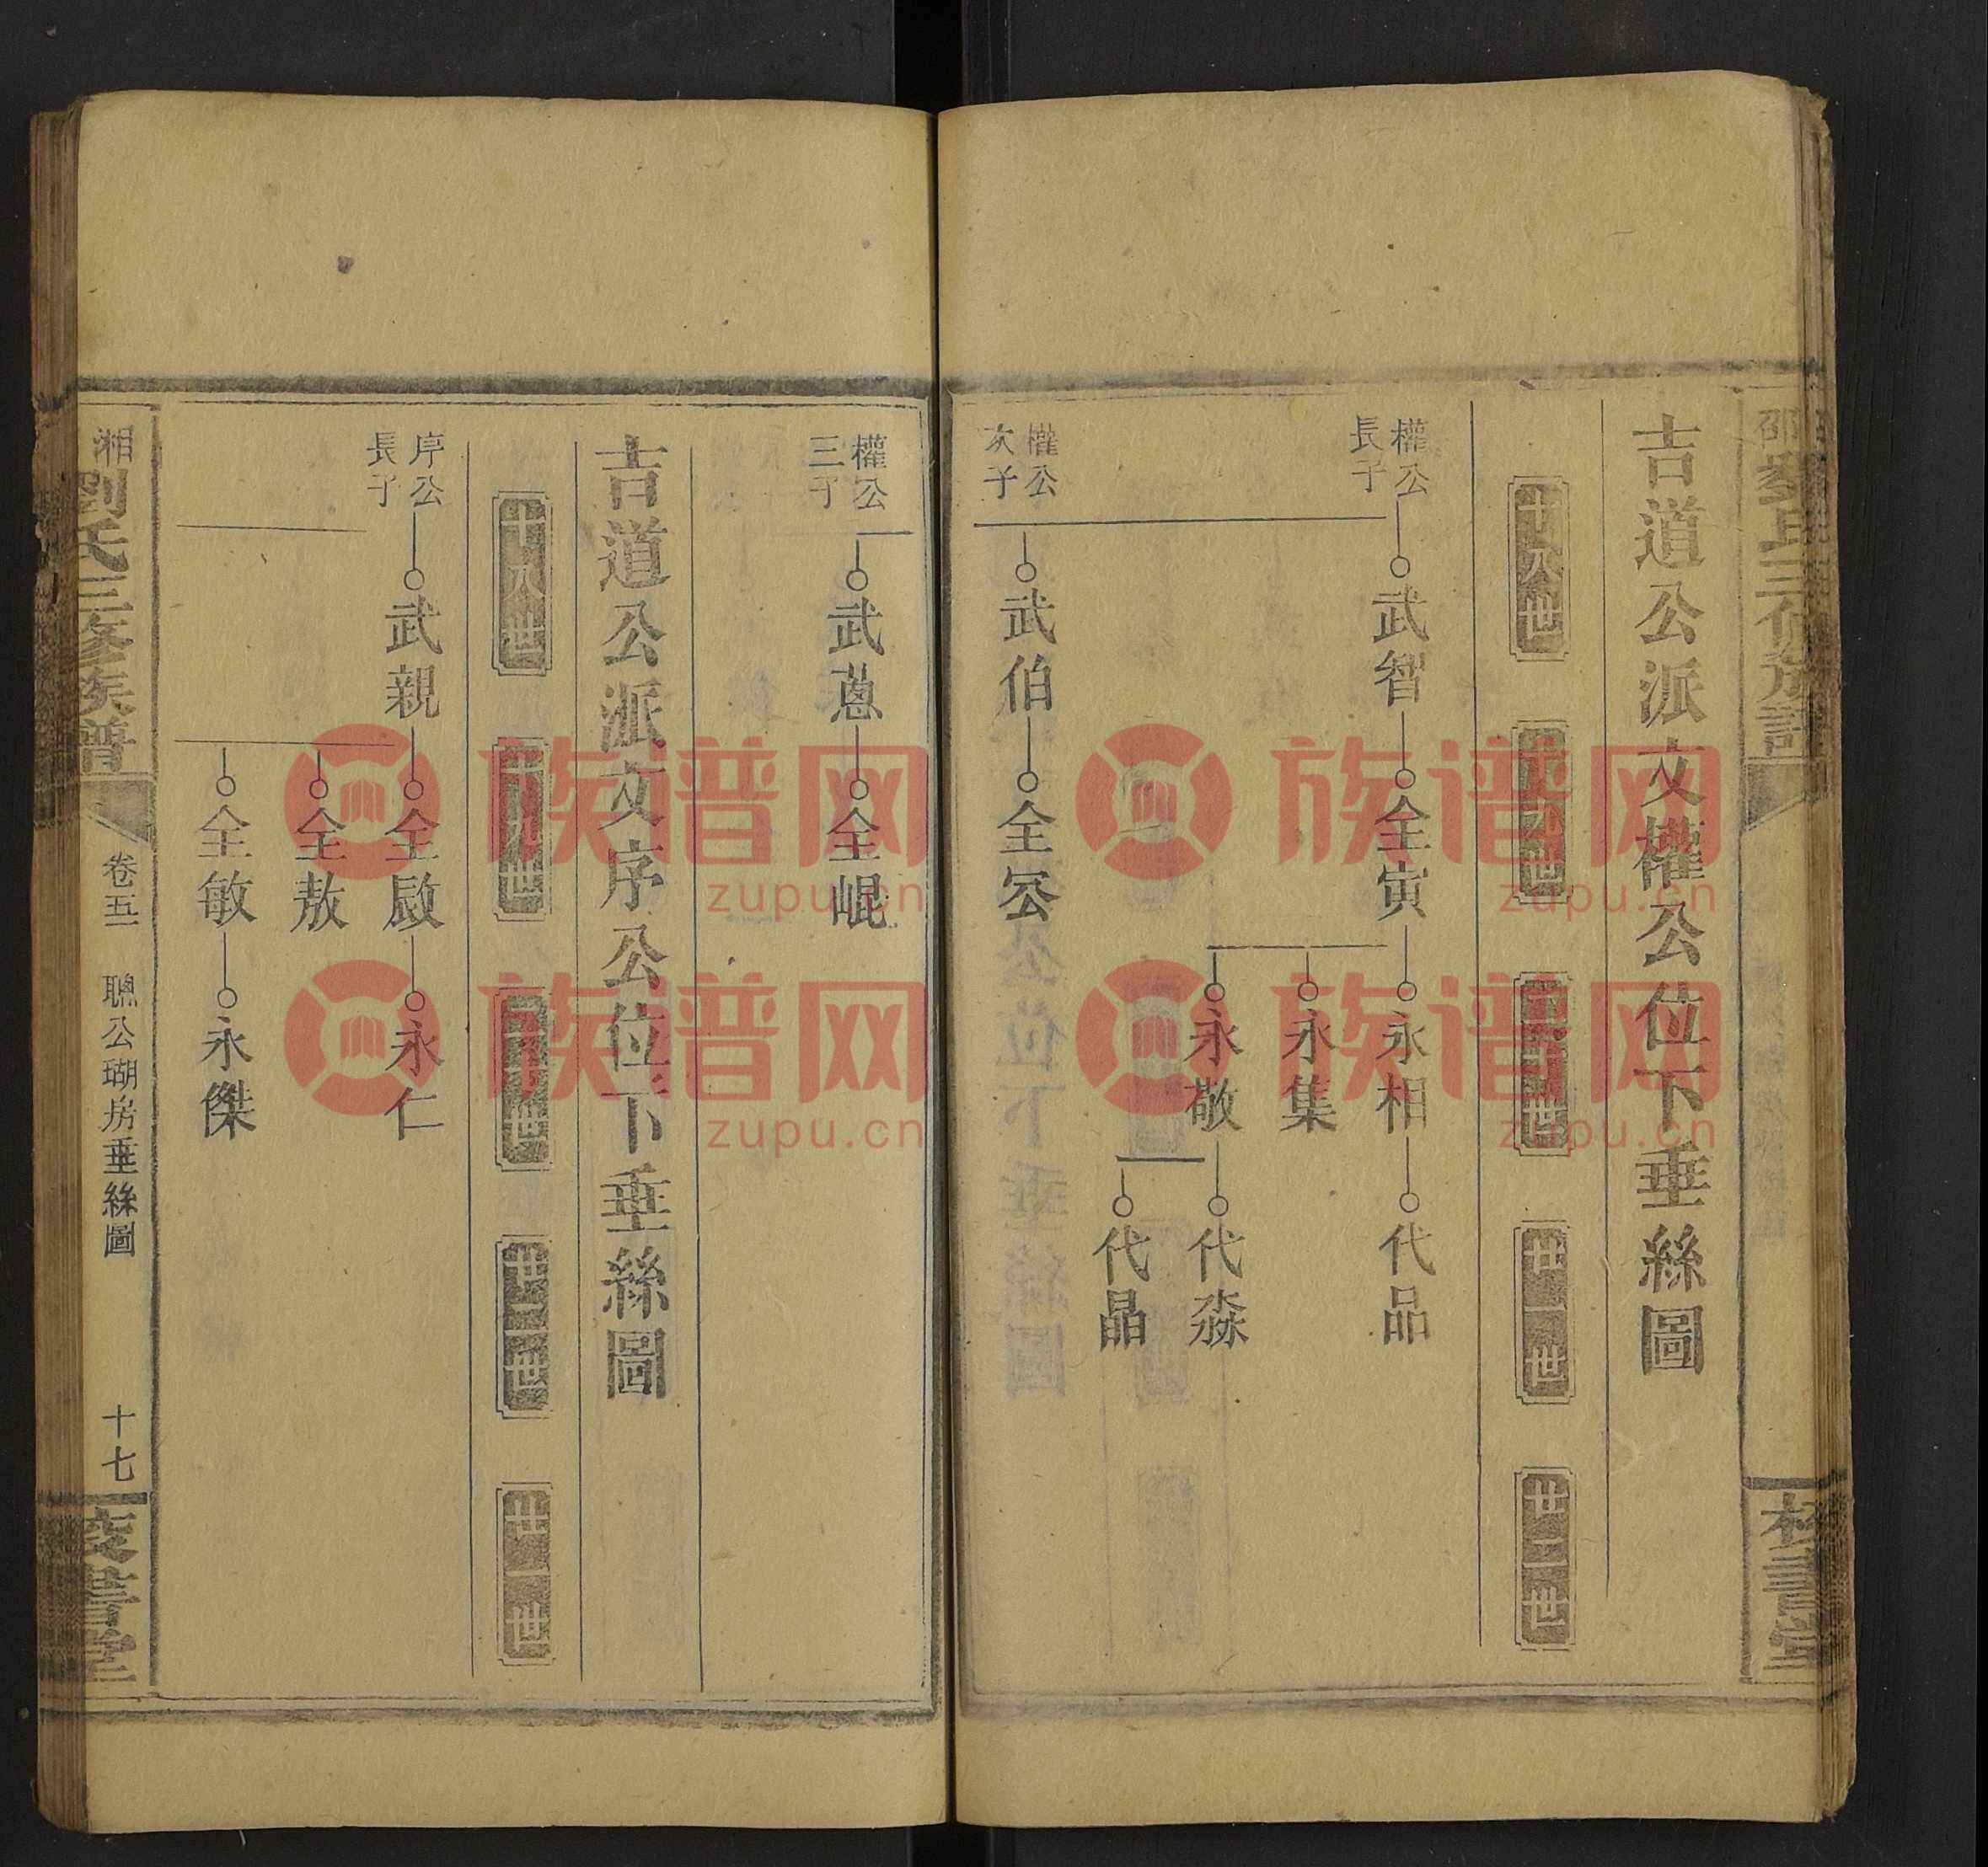 吉道公派文權公位下垂絲圖
十八世
十九世
二十世
廿一世
廿二世
權公長子
武智
全寅
永相
代品
永集
永敬
代淼
代晶
權公次子
武伯
全冞
權公三子
武蒽
全崐
吉道公派文序公位下垂絲圖
十八世
十九世
二十世
廿一世
廿二世
序公長子
武親
全啟
永仁
全敖
全敏
永傑
湘
劉氏三修族譜
卷五
聰公瑚房垂絲圖
十七
校書堂
邵
劉氏三修族譜
校書堂
族谱网
zupu.cn
族谱网
zupu.cn
族谱网
zupu.cn
族谱网
zupu.cn